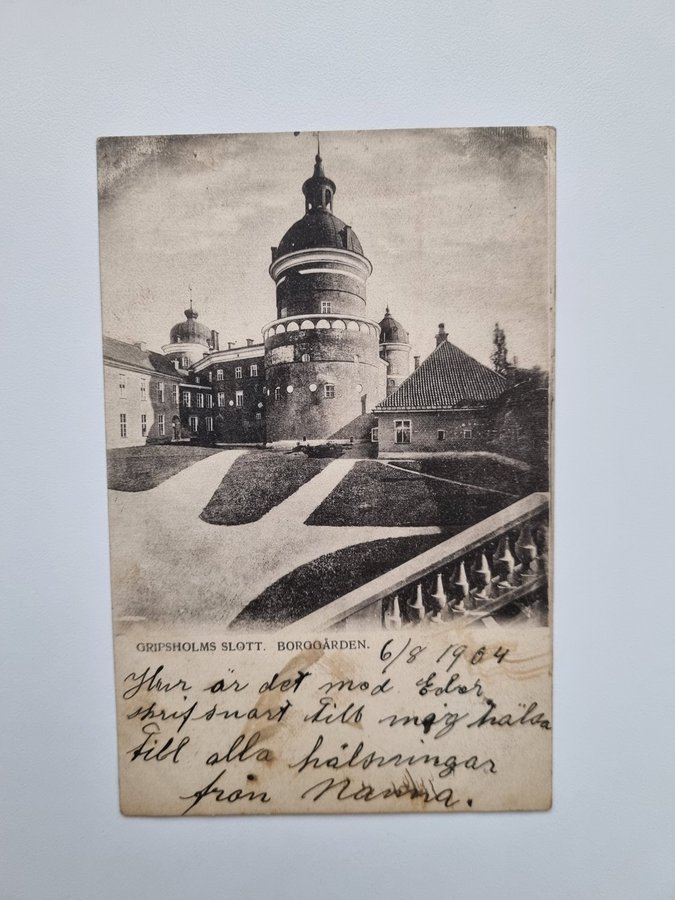 GRIPSHOLMS SLOTT. BORGGÅRDEN.
6/8 1904
Hur är det med Eder
skrif snart till mig hälsa
till alla hälsningar
från Nanna.